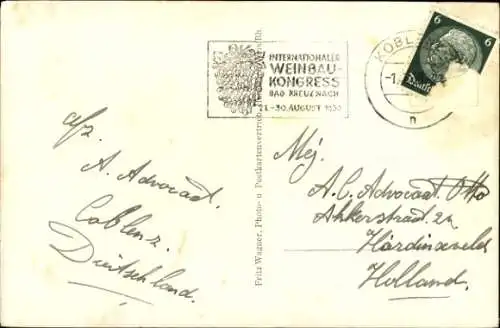 INTERNATIONALER
WEINBAU-
KONGRESS
BAD KREUZNACH
21.-30. AUGUST 1939
KOBL
-1.
n
6
6
Deutsches
a/z.
A. Advocaat.
Coblenz.
Duitschland.
Fritz Wagner, Photo- u Postkartenvertrieb
Mej.
A. C. Advocaat Otto
Ankerstraat 2a
Hardinxveld
Holland.